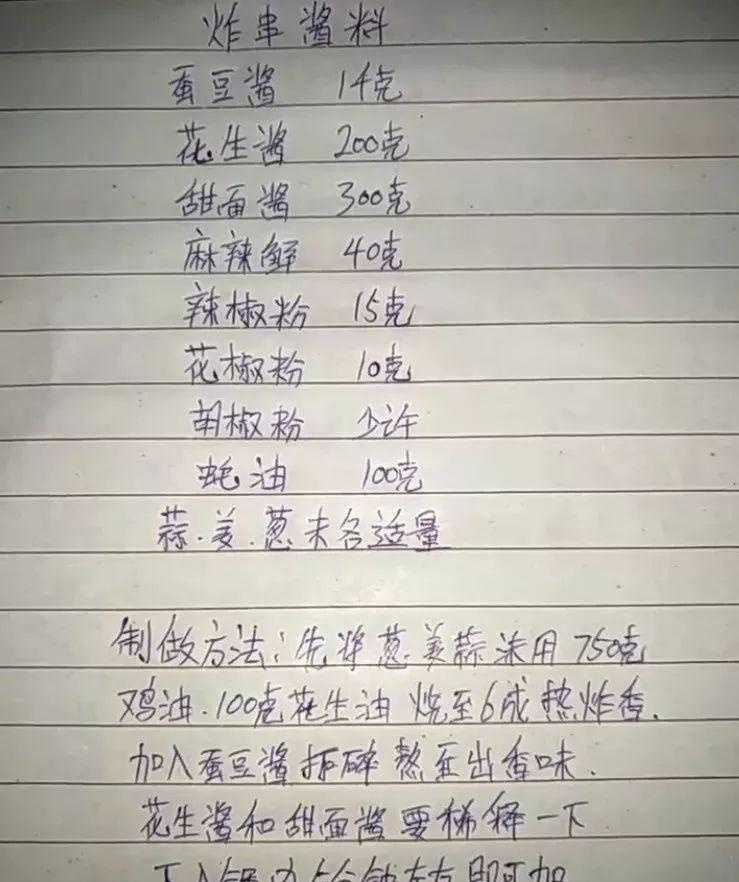 炸串酱料
蚕豆酱 14克
花生酱 200克
甜面酱 300克
麻辣鲜 40克
辣椒粉 15克
花椒粉 10克
胡椒粉 少许
蚝油 100克
蒜.姜.葱末各适量
制做方法:先将葱姜蒜沫用750克
鸡油.100克花生油烧至6成热炸香.
加入蚕豆酱 碎熬至出香味.
花生酱和甜面酱要稀释一下
下入锅内5分钟左右即可加